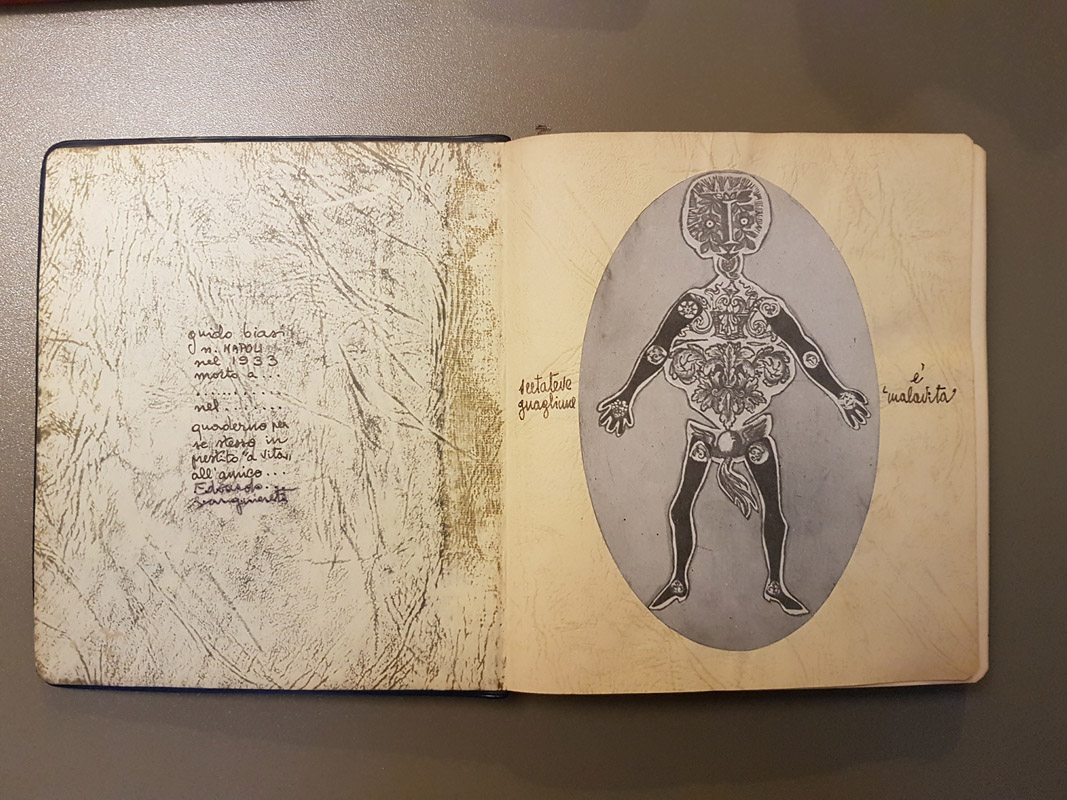 guido biasi
n. NAPOLI
nel 1933
morto a ...
........
nel ........
quaderno per
se stesso in
prestito "a vita"
all'amico ...
Edoardo ...
Sanguineti
scetateve
guagliune
é
"malavita"